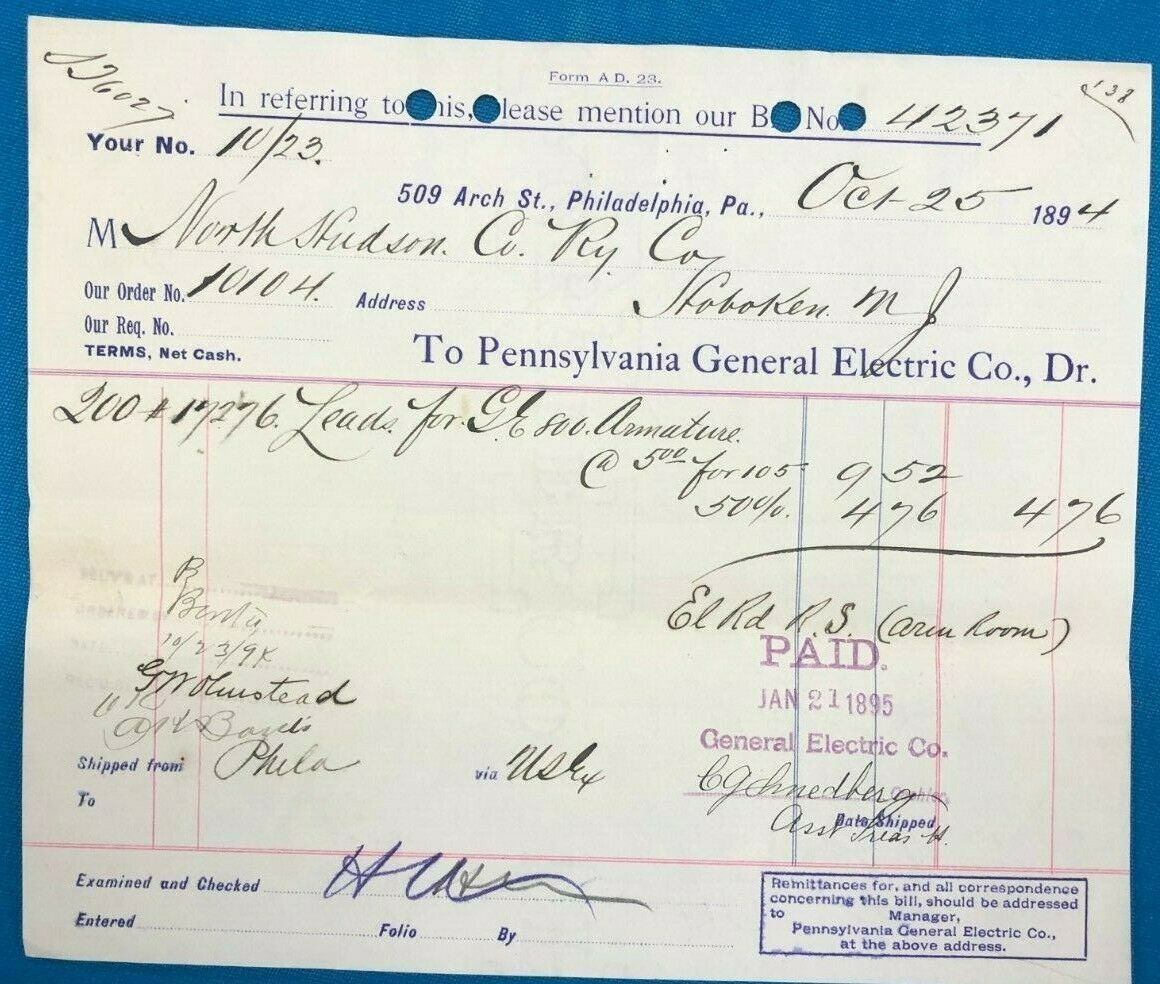 Form A D. 23.
138
S26027
In referring to his, lease mention our B No. 42371
Your No. 10/23.
509 Arch St., Philadelphia, Pa., Oct 25 1894
M North Hudson. Co. Ry. Co
Our Order No. 10104. Address Hoboken. N J
Our Req. No.
TERMS, Net Cash.
To Pennsylvania General Electric Co., Dr.
200 # 17276. Leads. for. G.E 800. Armature.
@ 5.00 for 105 9 52
50%. 4 76 4 76
El Rd R. S. (Arm Room)
PAID.
JAN 21 1895
General Electric Co.
Cashier
Asst Treas
B
10/23/94
G W Olmstead
Shipped from Phila via U S Ex
To
Date Shipped
Examined and Checked
Entered Folio By
Remittances for, and all correspondence
concerning this bill, should be addressed
to Manager,
Pennsylvania General Electric Co.,
at the above address.